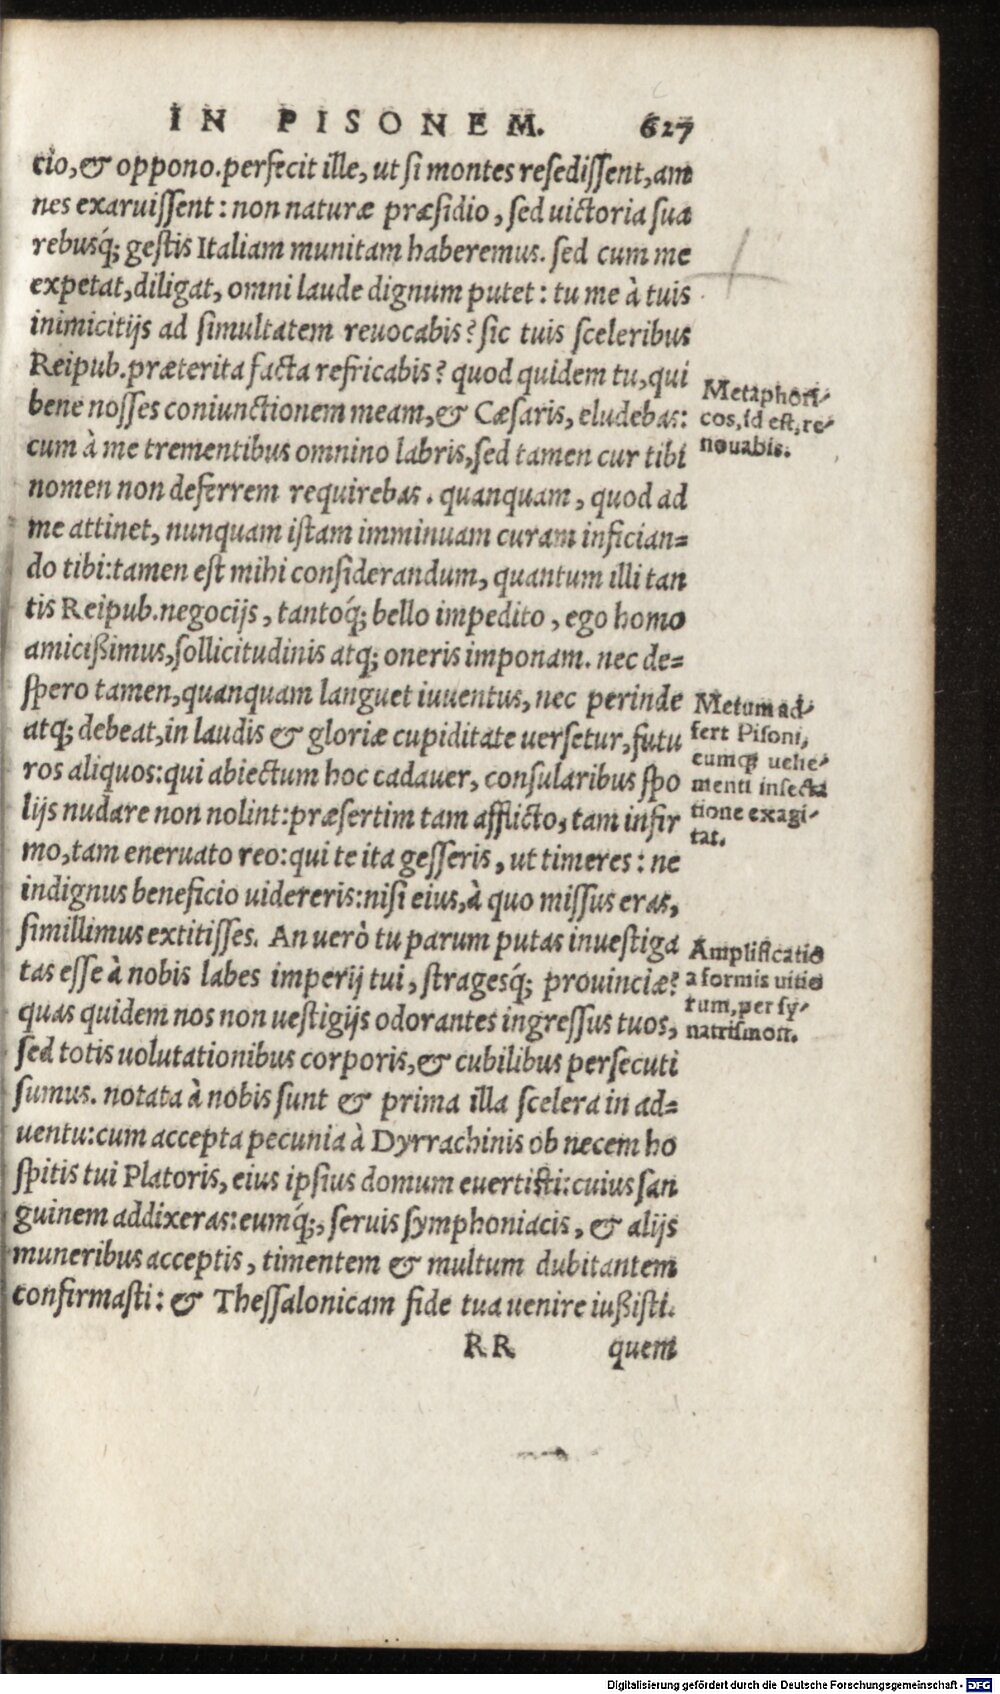 IN PISONEM. 627
cio, & oppono. perfecit ille, ut si montes resedissent, am
nes exaruissent: non naturæ præsidio, sed uictoria sua
rebusq́; gestis Italiam munitam haberemus. sed cum me
expetat, diligat, omni laude dignum putet: tu me à tuis
inimicitijs ad simultatem reuocabis? sic tuis sceleribus
Reipub. præterita facta refricabis? quod quidem tu, qui
bene nosses coniunctionem meam, & Cæsaris, eludebas:
cum à me trementibus omnino labris, sed tamen cur tibi
nomen non deferrem requirebas. quanquam, quod ad
me attinet, nunquam istam imminuam curam infician=
do tibi: tamen est mihi considerandum, quantum illi tan
tis Reipub. negocijs, tantoq́; bello impedito, ego homo
amicißimus, sollicitudinis atq; oneris imponam. nec de=
spero tamen, quanquam languet iuuentus, nec perinde
atq; debeat, in laudis & gloriæ cupiditate uersetur, futu
ros aliquos: qui abiectum hoc cadauer, consularibus spo
lijs nudare non nolint: præsertim tam afflicto, tam infir
mo, tam eneruato reo: qui te ita gesseris, ut timeres: ne
indignus beneficio uidereris: nisi eius, à quo missus eras,
simillimus extitisses. An uerò tu parum putas inuestiga
tas esse à nobis labes imperij tui, stragesq́; prouinciæ?
quas quidem nos non uestigijs odorantes ingressus tuos,
sed totis uolutationibus corporis, & cubilibus persecuti
sumus. notata à nobis sunt & prima illa scelera in ad=
uentu: cum accepta pecunia à Dyrrachinis ob necem ho
spitis tui Platoris, eius ipsius domum euertisti: cuius san
guinem addixeras: eumq́;, seruis symphoniacis, & alijs
muneribus acceptis, timentem & multum dubitantem
confirmasti: & Thessalonicam fide tua uenire iußisti.
RR quem
Metaphori-
cos, id est, re-
nouabis.
Metum ad-
fert Pisoni,
eumq; uehe-
menti insecta
tione exagi-
tat.
Amplificatio
a formis uitio
rum, per sy-
natrismon.
Digitalisierung gefördert durch die Deutsche Forschungsgemeinschaft - DFG